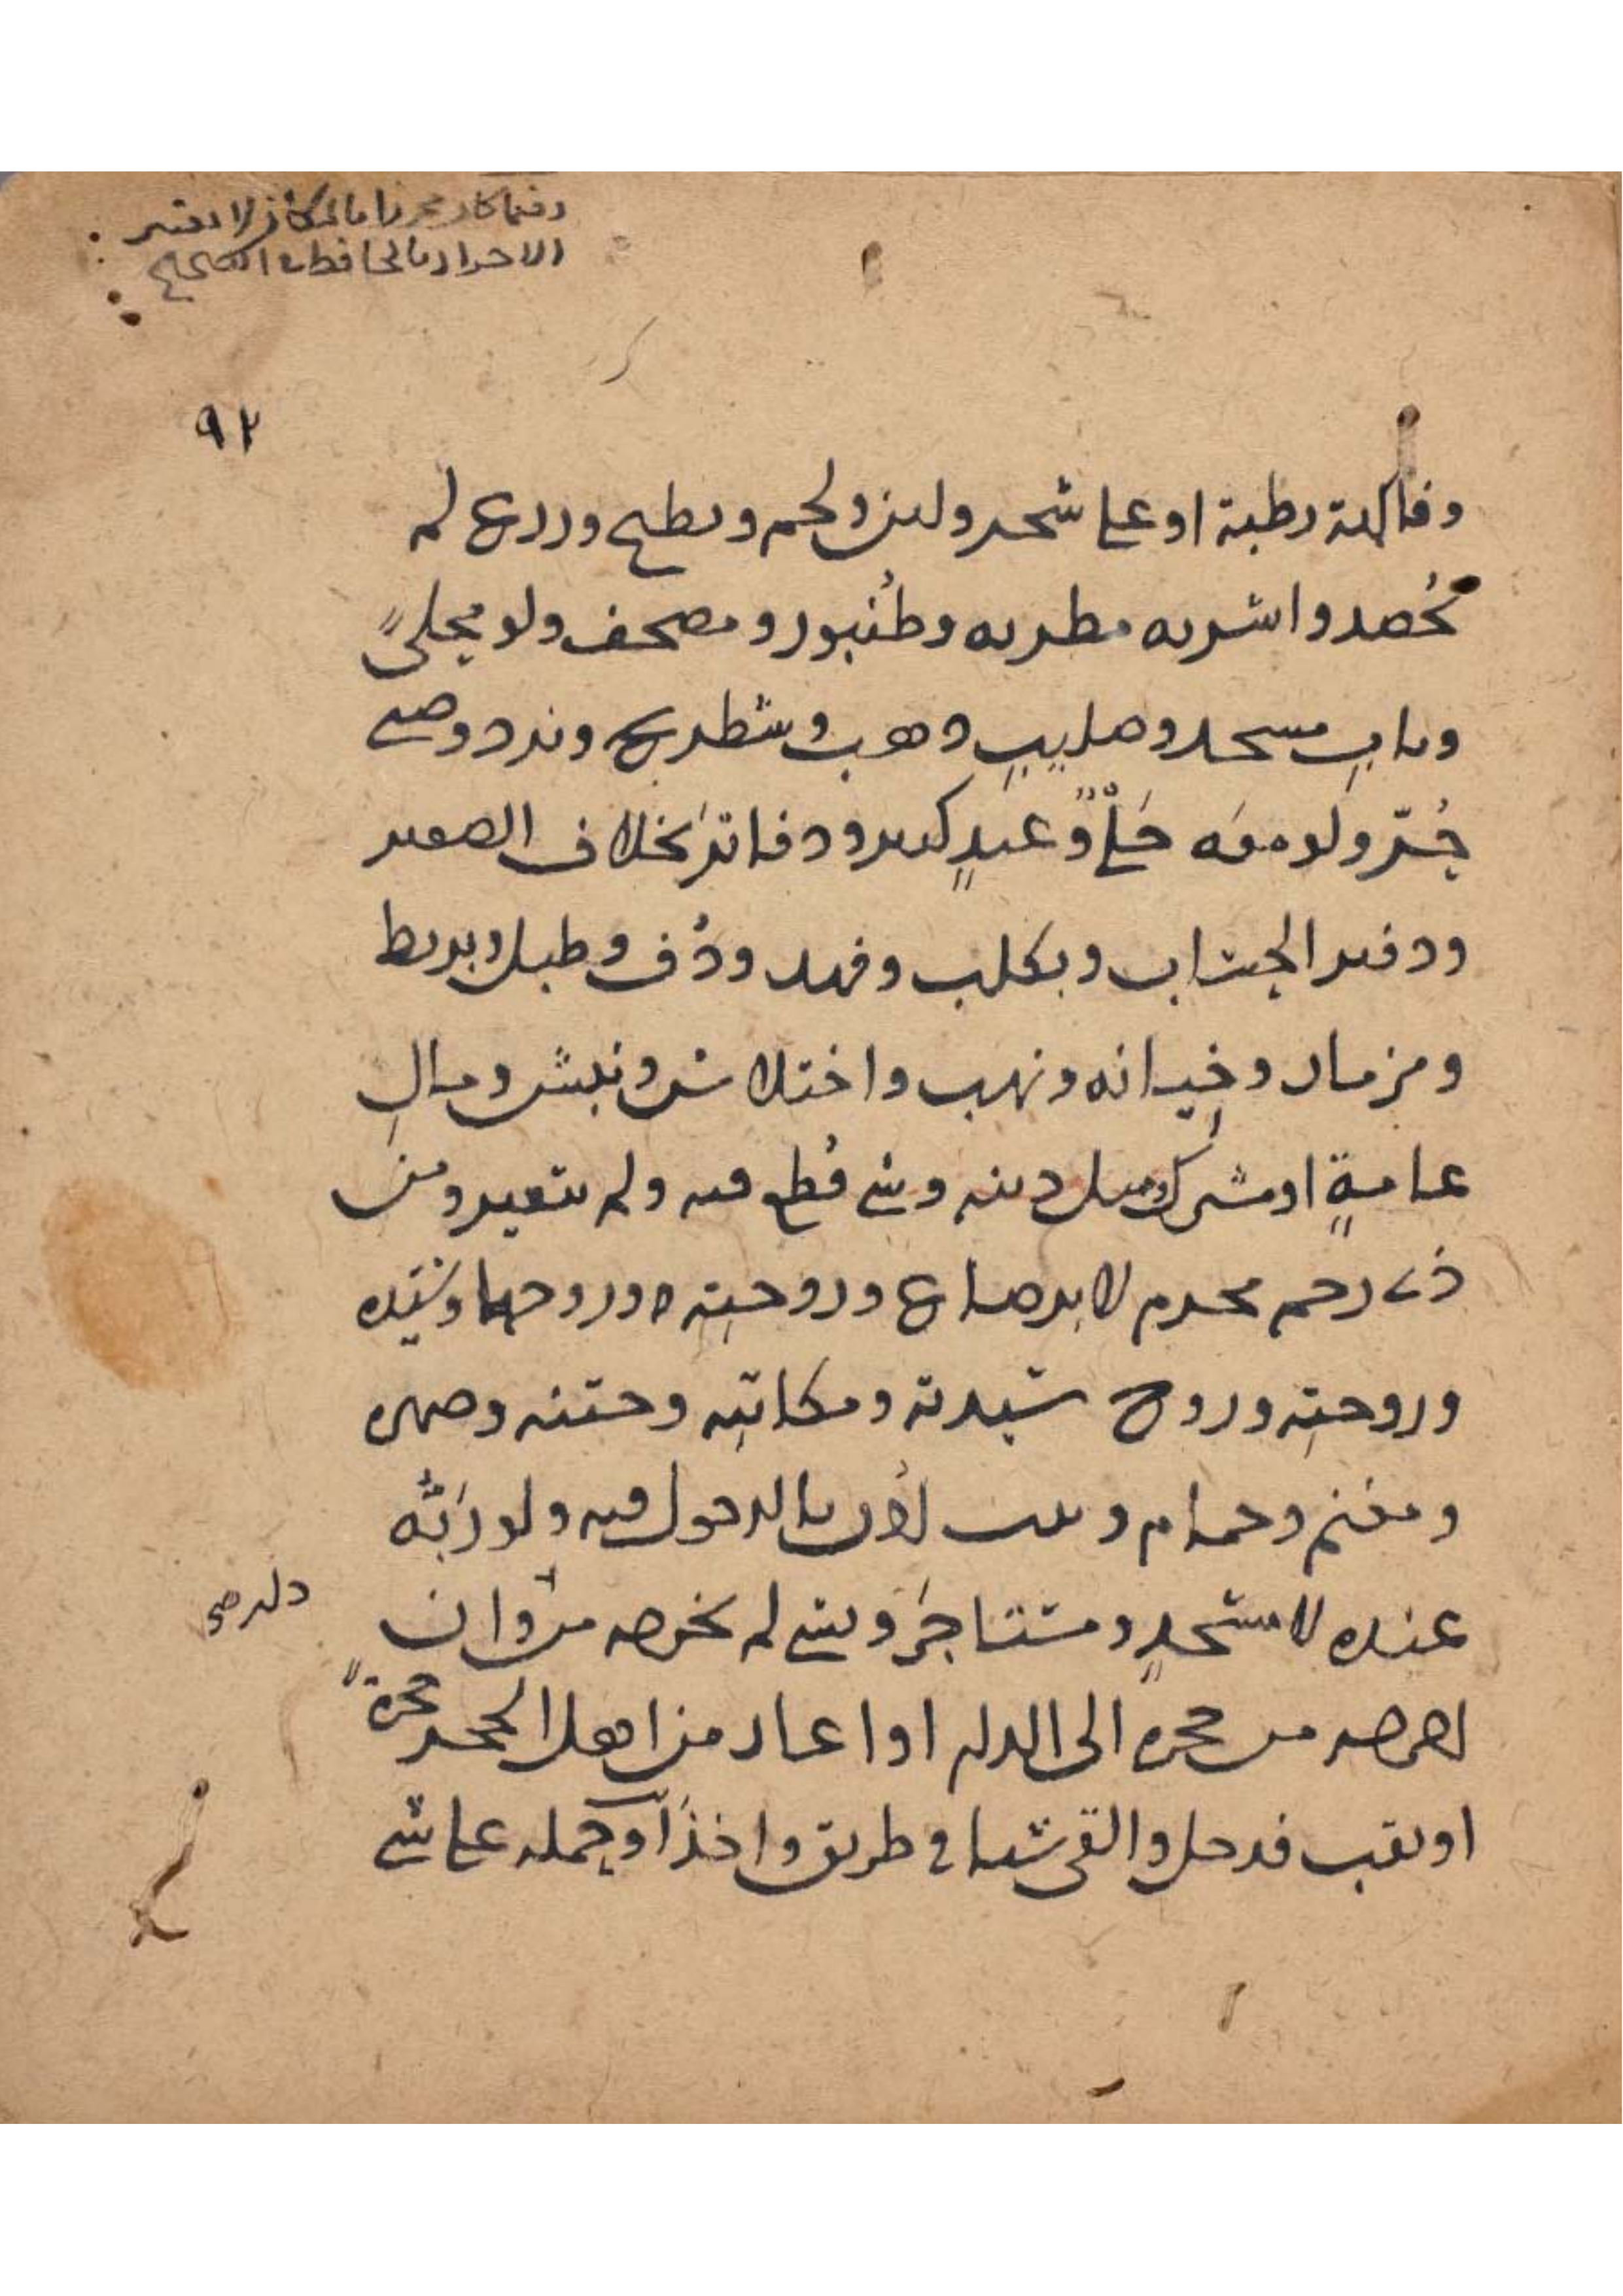 وفيما كان محرزا بالمكان لا يعتبر
الاحراز بالحافظ الصحيح
٩٢
وفاكهة رطبة او على شجر ولبن ولحم وبطيخ وزرع لم
يُحصد واشربه مطربه وطُنبور ومصحف ولو محلىً
وباب مسجد وصليب ذهب وشطرنج ونرد وصبي
حُرّ ولو معه حَلْيٌ وعبدٍ كبير ودفاتر بخلاف الصغير
ودفتر الحساب وبكلب وفهد ودُف وطبل وبربط
ومزمار وخيانه ونهب واختلاس ونبش ومالِ
عامةٍ او مشترك ومثل دينه وشي قُطع فيه ولم يتغير ومن
ذي رحم محرم لا برضاع وزوجتِه وزوجها وسيّده
وزوجتِه وزوج سيدته ومكاتبِه وختنه وصهره
ومغنم وحمام وبيت اُذن بالدخول فيه ولو ربُّه
عنده لا مسجدٍ ومستاجَر وشي لم يخرجه من دار وان
اخرجه من حجره الى الدار او اغار من اهل الحجر حجرةً
او نقب فدخل والقى شيا في طريق واخذ او حمله على شي